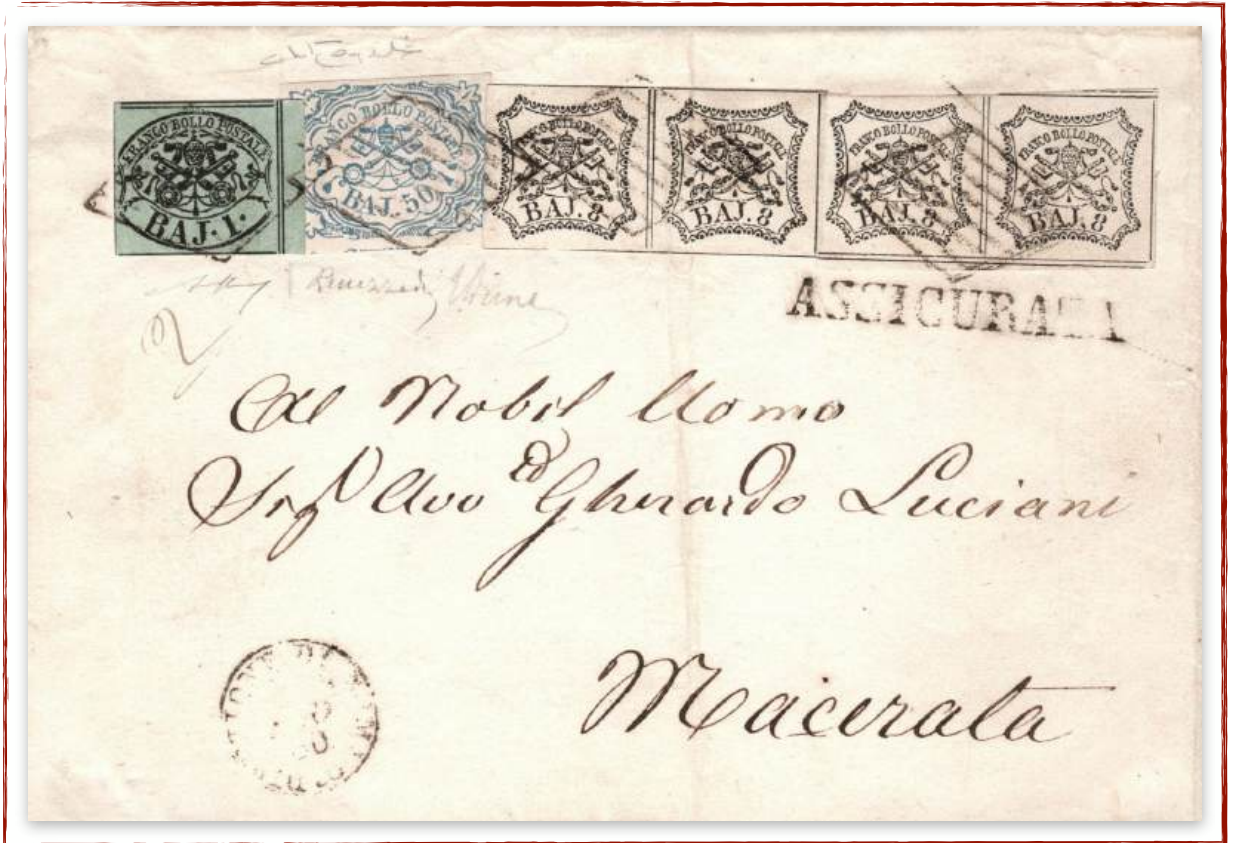 FRANCO BOLLO POSTALE
BAJ. 1.
FRANCO BOLLO POSTALE
BAJ. 50
FRANCO BOLLO POSTALE
BAJ. 8
FRANCO BOLLO POSTALE
BAJ. 8
FRANCO BOLLO POSTALE
BAJ. 8
FRANCO BOLLO POSTALE
BAJ. 8
ASSICURATA
Al Nobil Uomo
Sig. Avv Gherardo Luciani
Macerata